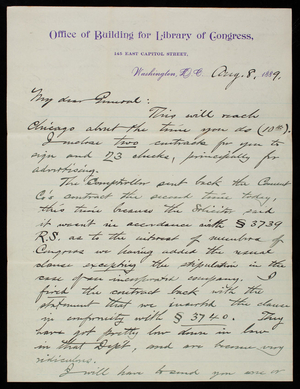 Office of Building for Library of Congress,
145 EAST CAPITOL STREET,
Washington, D.C. Aug. 8, 1889.
My dear General:
This will reach
Chicago about the time you do (10th).
I enclose two contracts for you to
sign and 23 checks, principally for
advertising.
The Comptroller sent back the Cement
Co's contract the second time today,
this time because the Solicitor said
it wasn't in accordance with § 3739
R.S. as to the interest of members of
Congress we having added the usual
clause excepting the stipulation in the
case of an incorporated company. I
fired the contract back with the
statement that we inserted the clause
in conformity with § 3740. They
have got pretty low down in law
in that Dept, and are become very
ridiculous.
I will have to send you one or